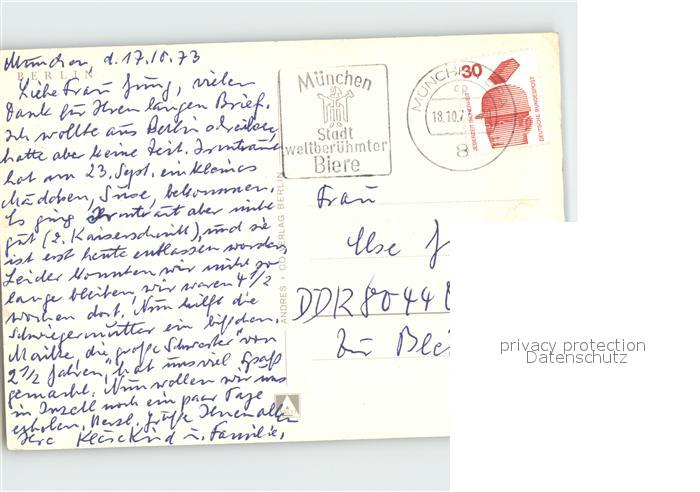 München, d. 17.10.73
BERLIN
Liebe Frau Jung, vielen
Dank für Ihren langen Brief.
Ich wollte aus Berlin schreiben,
hatte aber keine Zeit. Irmtraut
hat am 23. Sept. ein kleines
Mädchen, Suse, bekommen.
Es ging Irmtraut aber nicht
gut (2. Kaiserschnitt), und sie
ist erst heute entlassen worden.
Leider konnten wir nicht so
lange bleiben, wir waren 4 1/2
Wochen dort. Nun hilft die
Schwiegermutter ein bißchen.
Maike, die "große Schwester" von
2 1/2 Jahren, hat uns viel Spaß
gemacht. Nun wollen wir uns
in Inzell noch ein paar Tage
erholen. Herzl. Grüße Ihnen allen
Ihre u. Familie.
ANDRES + CO VERLAG BERLIN
München
Stadt
weltberühmter
Biere
MÜNCH
18.10.7
8
30
JEDERZEIT SICHERHEIT
DEUTSCHE BUNDESPOST
Frau
Ilse J
DDR 8044
Zur Blei
privacy protection
Datenschutz